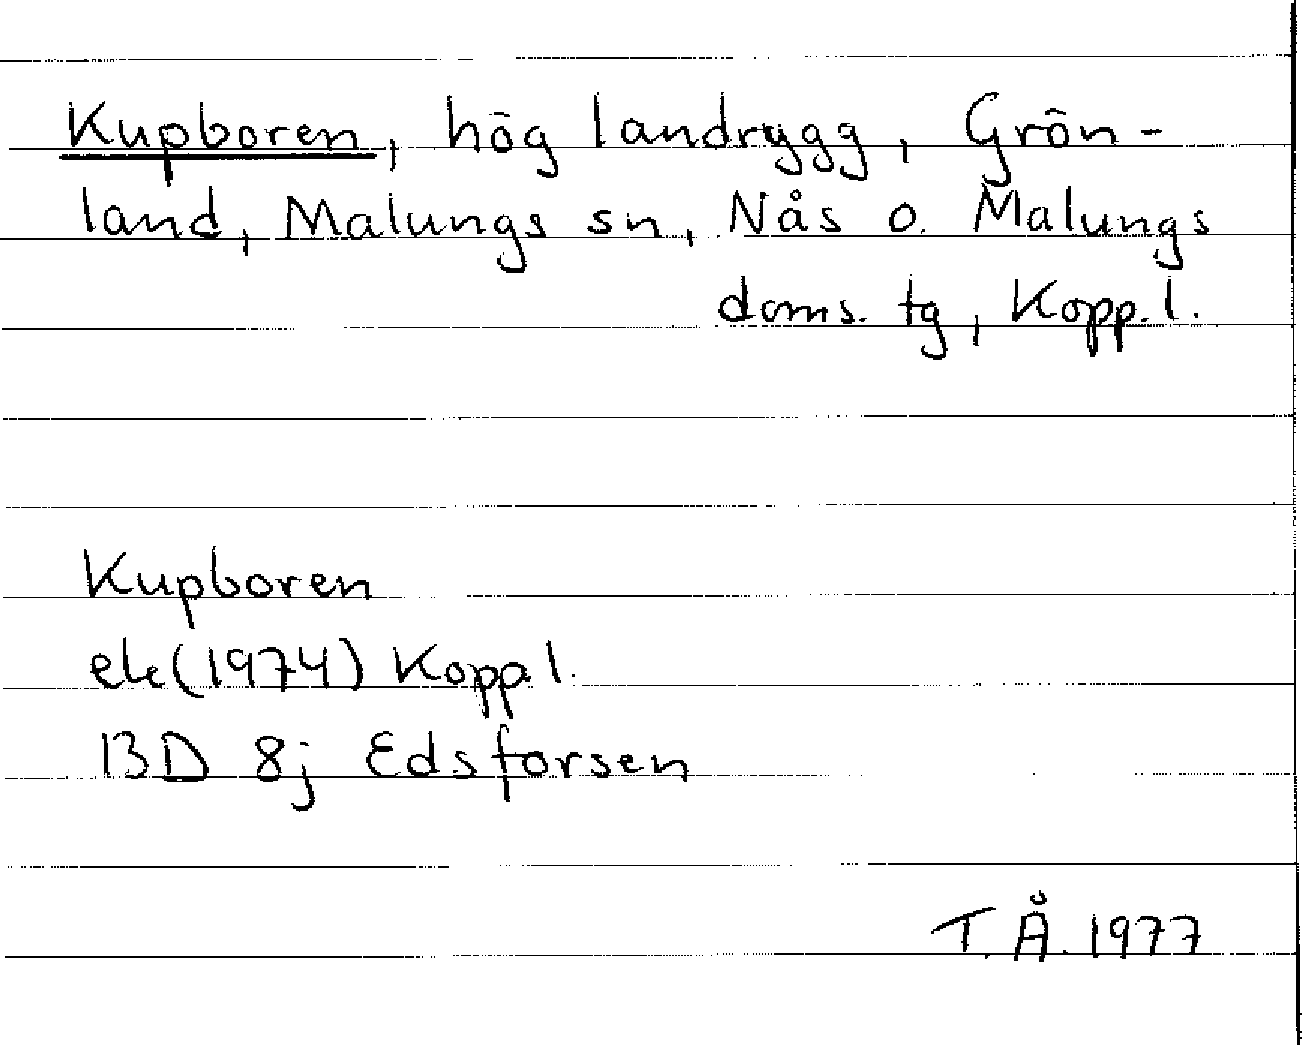 Kupboren, hög landrygg, Grön-
land, Malungs sn, Nås o. Malungs
doms. tg, Kopp. l.
Kupboren
ek (1974) Kopp l.
13D 8j Edsforsen
T.Å. 1977